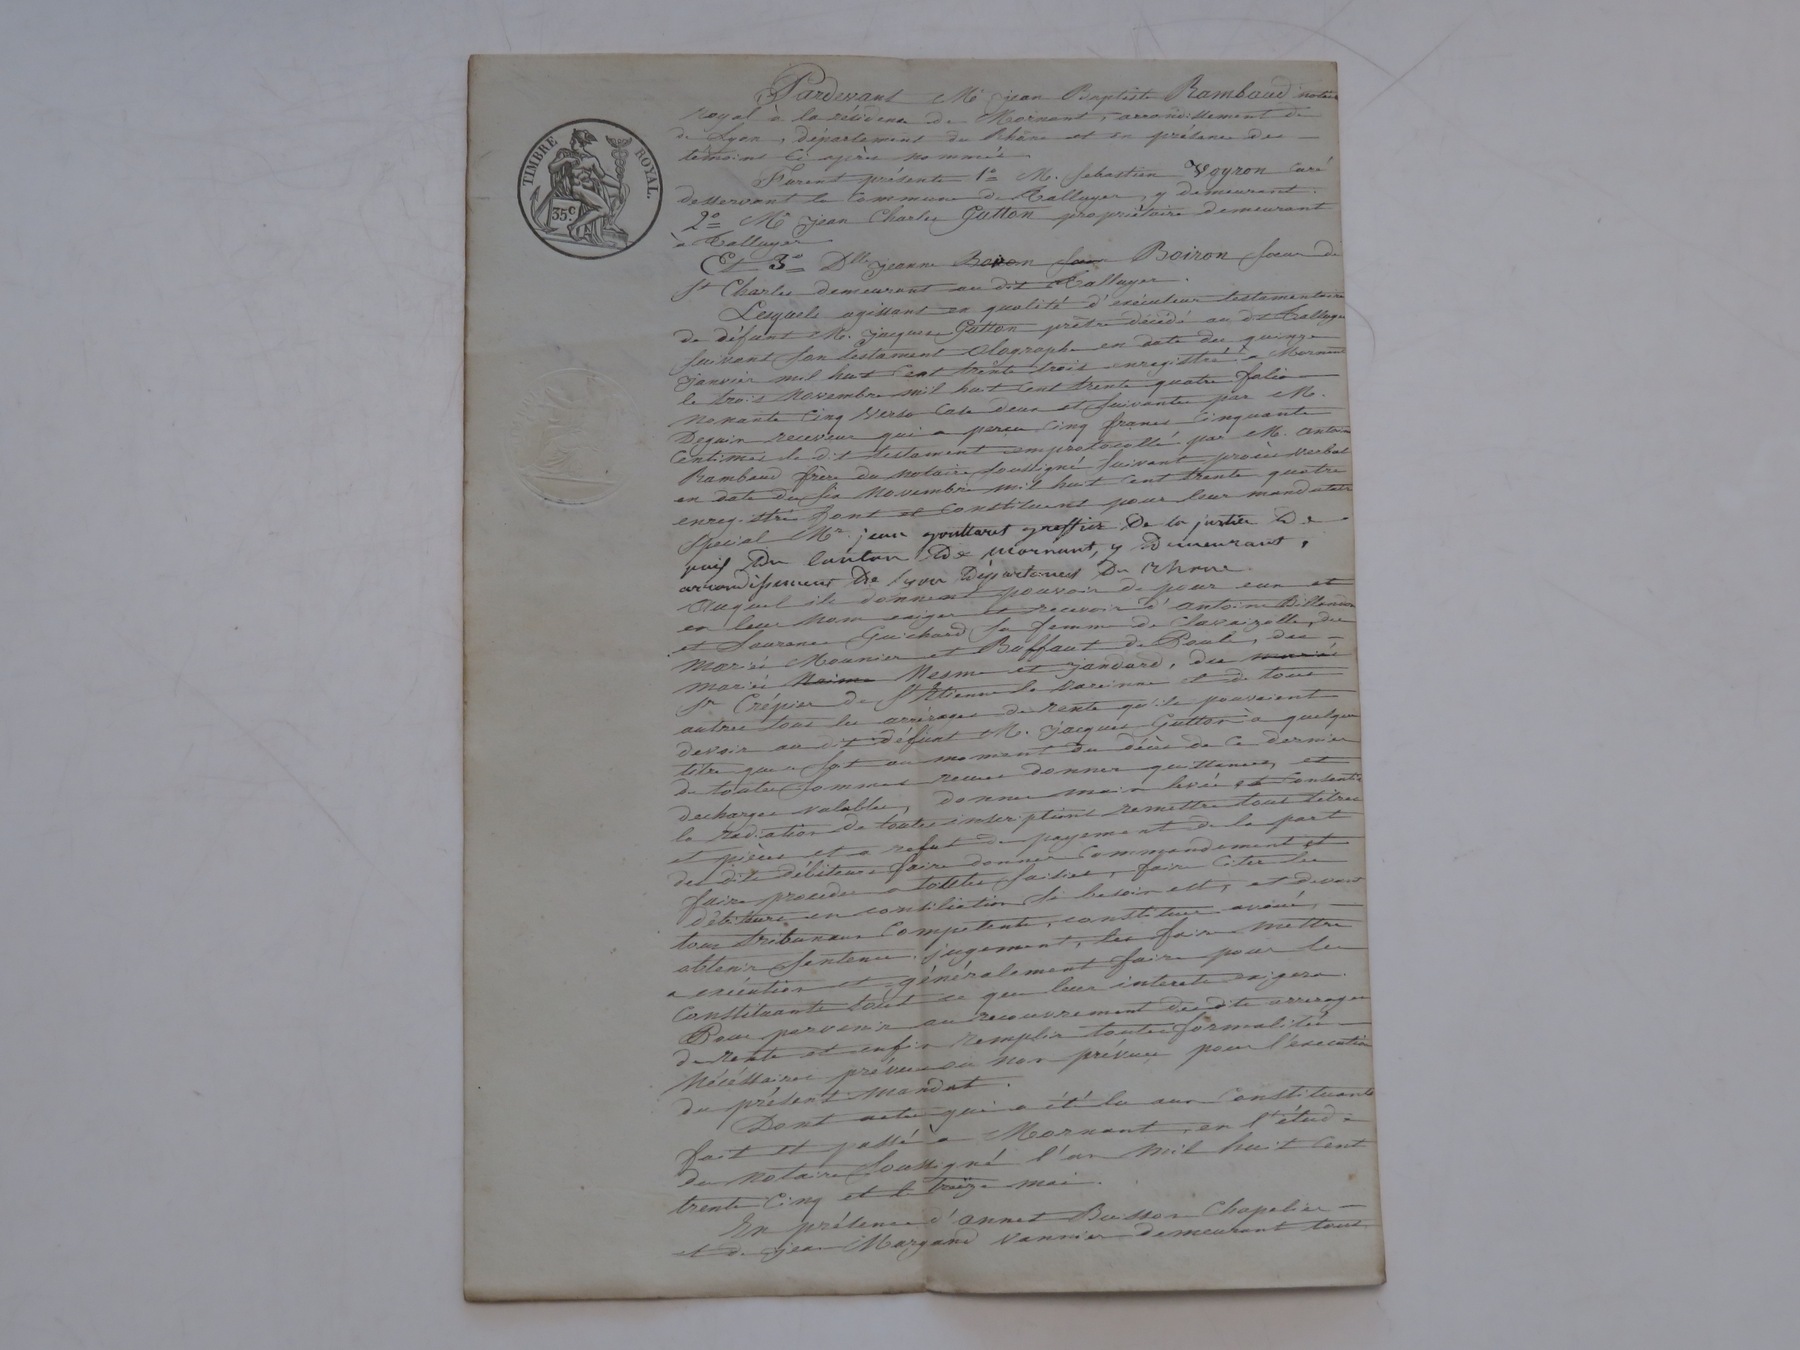 TIMBRE ROYAL.
35.c
Pardevant Me jean Baptiste Rambaud notaire
royal à la résidence de Mornant, arrondissement de
de Lyon, département du Rhône et en présence des
témoins ci après nommés.
Furent présents 1o M. Sébastien Voyron curé
desservant la Commune de Talluyer, y demeurant.
2o Mr jean Charles Gutton propriétaire demeurant
à Talluyer
Et 3o Dlle jeanne Boiron soeur de
St Charles demeurant au dit Talluyer.
Lesquels agissant en qualité d'exécuteur testamentaire
de défunt M. jacques Gutton prêtre décédé au dt Talluyer
suivant son testament Olographe en date du quinze
janvier mil huit cent trente trois enregistré à Mornant
le trois Novembre mil huit cent trente quatre folio
nonante cinq verso case deux et suivante par M.
Deguin receveur qui a perçu cinq francs cinquante
centimes le dit testament emprotocollé par M. antoine
Rambaud frère du notaire soussigné suivant procès verbal
en date du six Novembre mil huit cent trente quatre
enregistré font et constituent pour leur mandataire
special Mr. jean gouttaret greffier De la justice De
paix Du Canton De Mornant, y Demeurant,
arrondissement De lyon Département Du rhone.
Auquel ils donnent pouvoir de pour eux et
en leur Nom exiger et recevoir d'antoine
et Laurence Guichard sa femme de Clavaizolle, des
mariés Mounier et Buffaut de Poule, des
mariés Nesme et jandard, des
Sr Crépier de St Etienne la Varenne et de tous
autres tous les arrérages de rente qu'ils pouvaient
devoir au dit défunt M. jacques Gutton à quelque
titre que ce soit au moment du décès de ce dernier
de toutes sommes reçues donner quittances et
decharges valables, donner main levée et consentir
la radiation de toutes inscriptions remettre tous titres
et pièces et a refus de payement de la part
des dits débiteurs faire donner commandement et
faire proceder a toutes saisies, faire citer les
débiteurs en conciliation si besoin est, et devant
tous tribunaux Competents, constituer avoué,
obtenir sentence jugement, les faire mettre
a exécution et généralement faire pour les
constituants tout ce que leur interets exigera
Pour parvenir au recouvrement desdits arrerages
de rente et enfin remplir toutes formalités
Nécéssaires prévues ou non prévues pour l'execution
du présent Mandat.
Dont acte qui a été lu aux Constituants
fait et passé a Mornant, en l'étude
du Notaire soussigné l'an Mil huit cent
trente cinq et le treize mai.
En présence d'annet Buisson Chapelier
et de jean Margand vannier demeurant tous